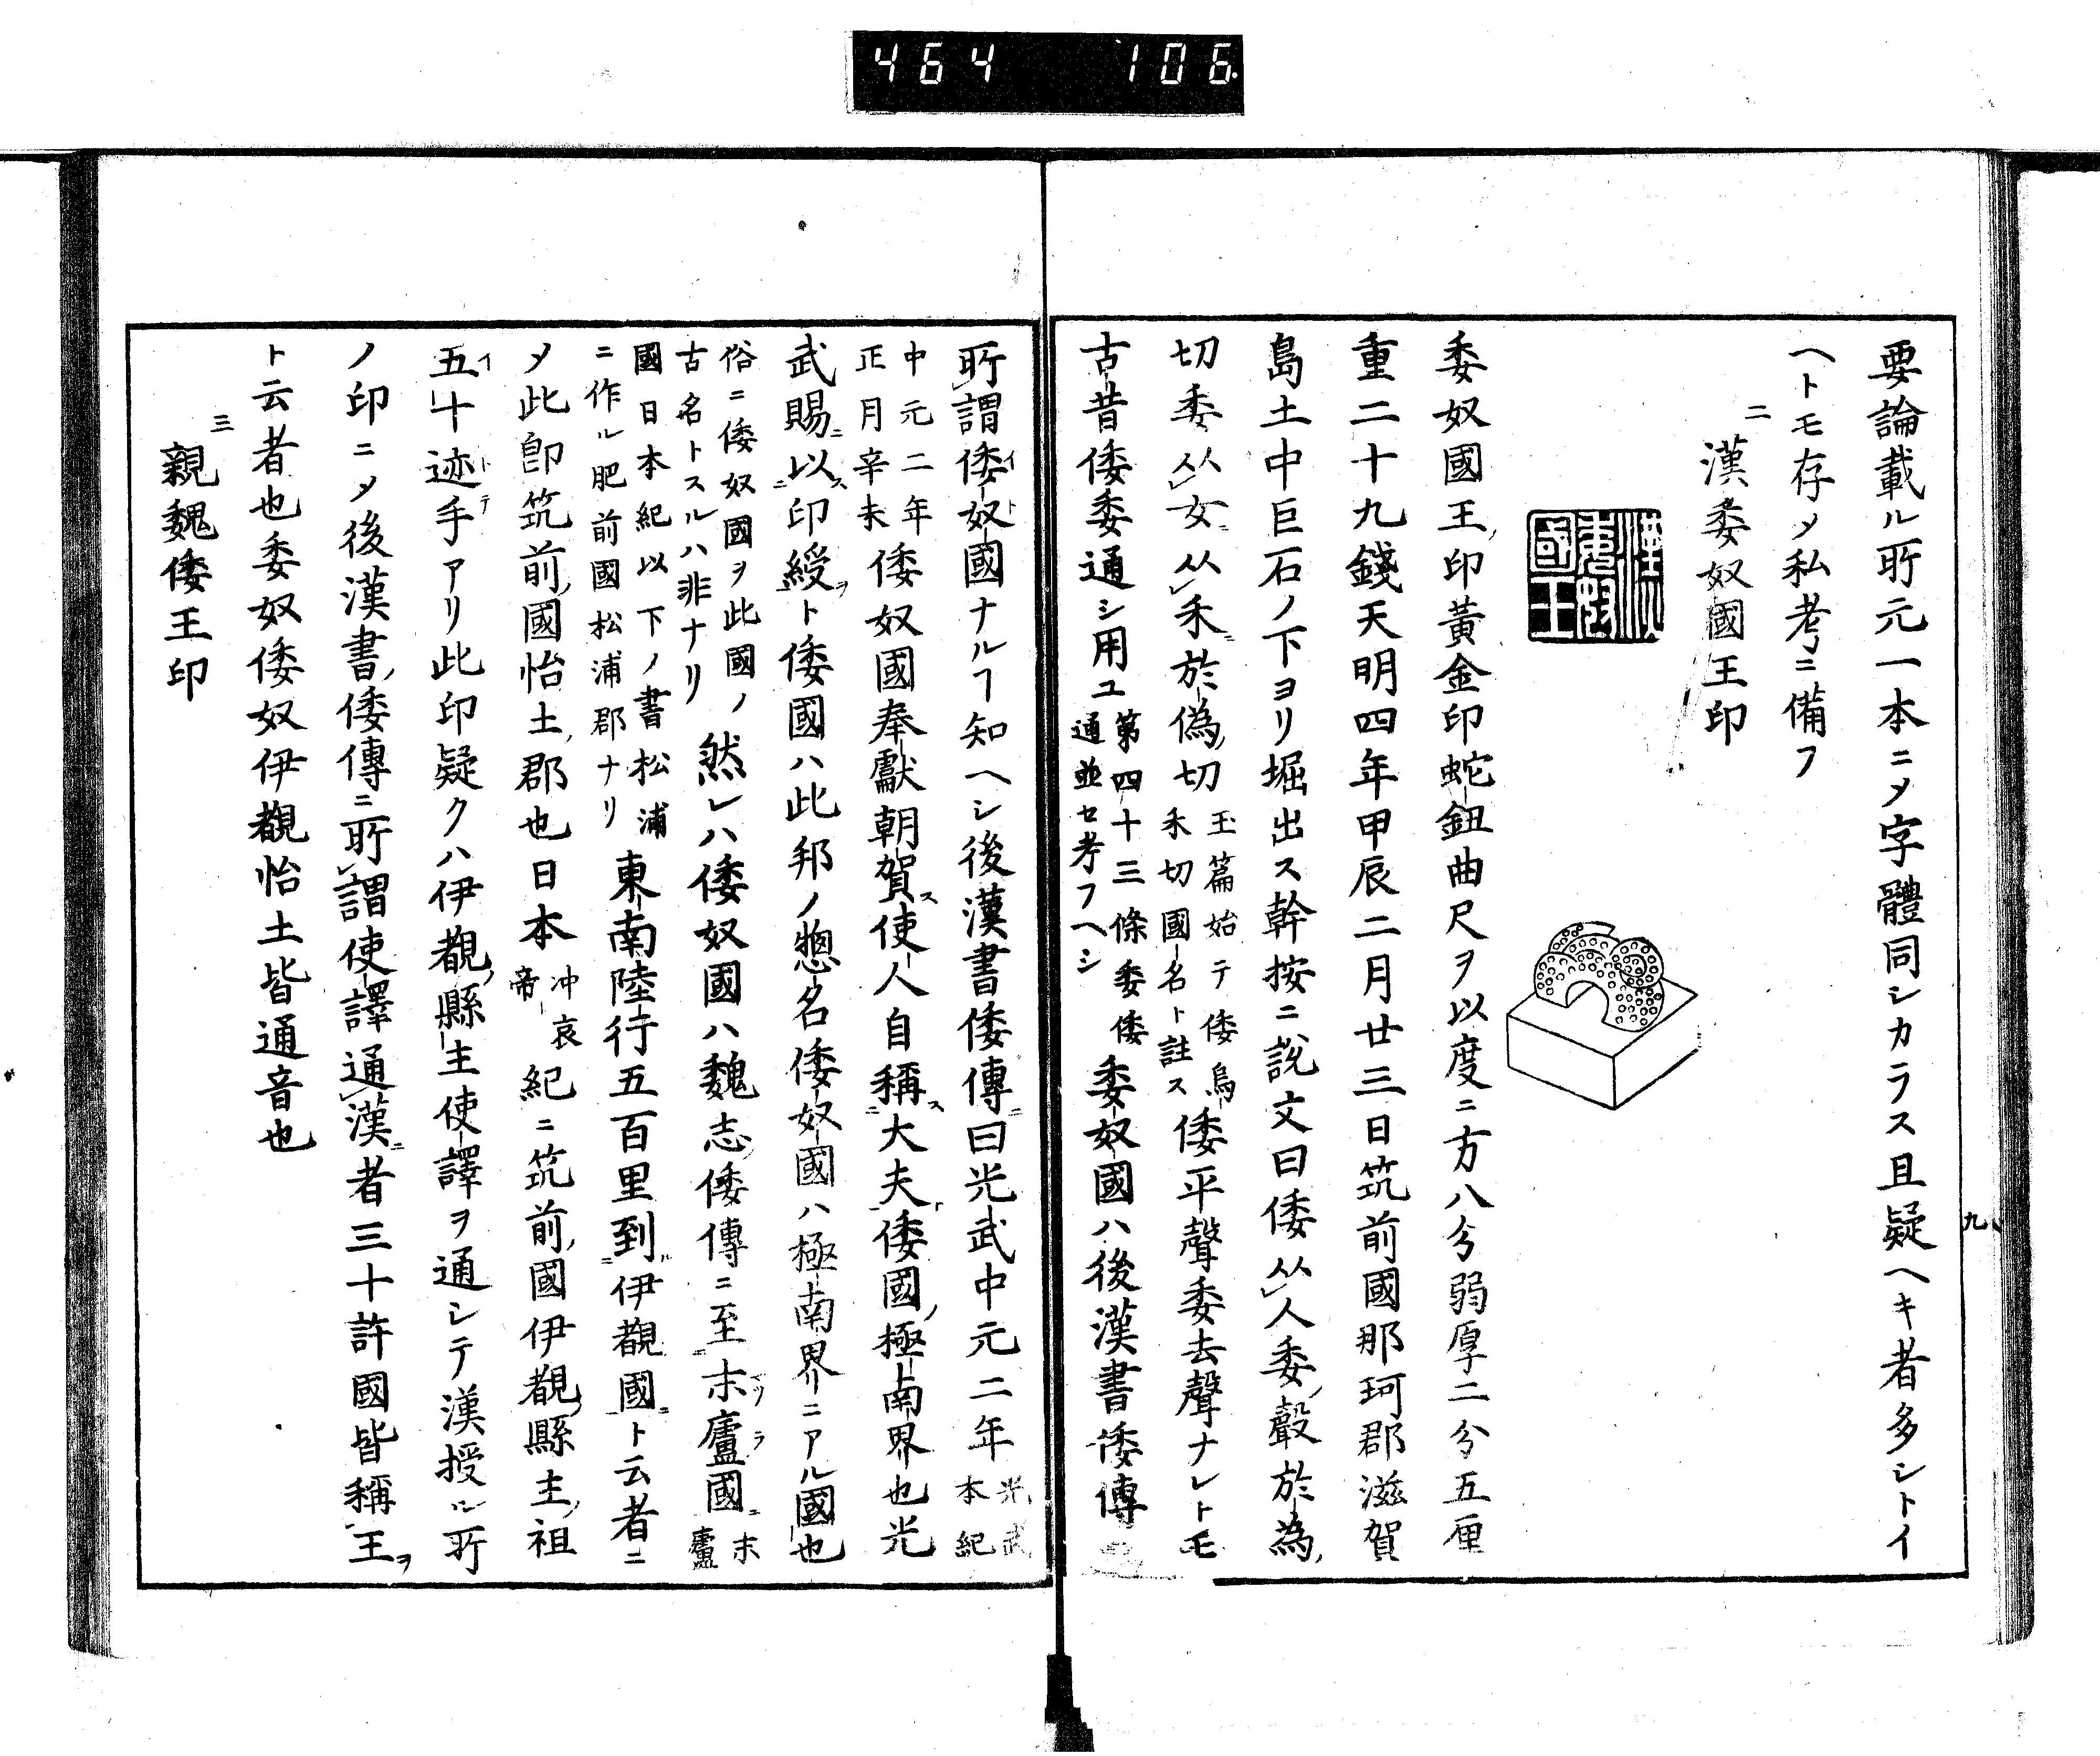 464 106
要論載ル所元一本ニメ字體同シカラス且疑ヘキ者多シトイ
ヘトモ存メ私考ニ備フ
二
漢委奴國王印
漢委奴國王
委奴國王印黃金印蛇鈕曲尺ヲ以度ニ方八分弱厚二分五厘
重二十九錢天明四年甲辰二月廿三日筑前國那珂郡滋賀
島土中巨石ノ下ヨリ堀出ス幹按ニ說文曰倭从人委聲於為
切委从女从禾於偽切
玉篇始テ倭烏
禾切國名ト註ス
倭平聲委去聲ナレトモ
古昔倭委通シ用ユ
第四十三條委倭
通並セ考フヘシ
委奴國ハ後漢書倭傳
九
所謂倭奴國ナルヿ知ヘシ後漢書倭傳曰光武中元二年
光武
本紀
中元二年
正月辛未
倭奴國奉獻朝賀使人自稱大夫倭國極南界也光
武賜以印綬ト倭國ハ此邦ノ惣名倭奴國ハ極南界ニアル國也
俗ニ倭奴國ヲ此國ノ
古名トスルハ非ナリ
然レハ倭奴國ハ魏志倭傳ニ至末廬國
末
廬
國日本紀以下ノ書松浦
ニ作ル肥前國松浦郡ナリ
東南陸行五百里到伊覩國ト云者ニ
メ此卽筑前國怡土郡也日本
冲哀
帝
紀ニ筑前國伊覩縣主祖
五十迹手アリ此印疑クハ伊覩縣主使譯ヲ通シテ漢授ル所
ノ印ニメ後漢書倭傳ニ所謂使譯通漢者三十許國皆稱王
ト云者也委奴倭奴伊覩怡土皆通音也
三
親魏倭王印